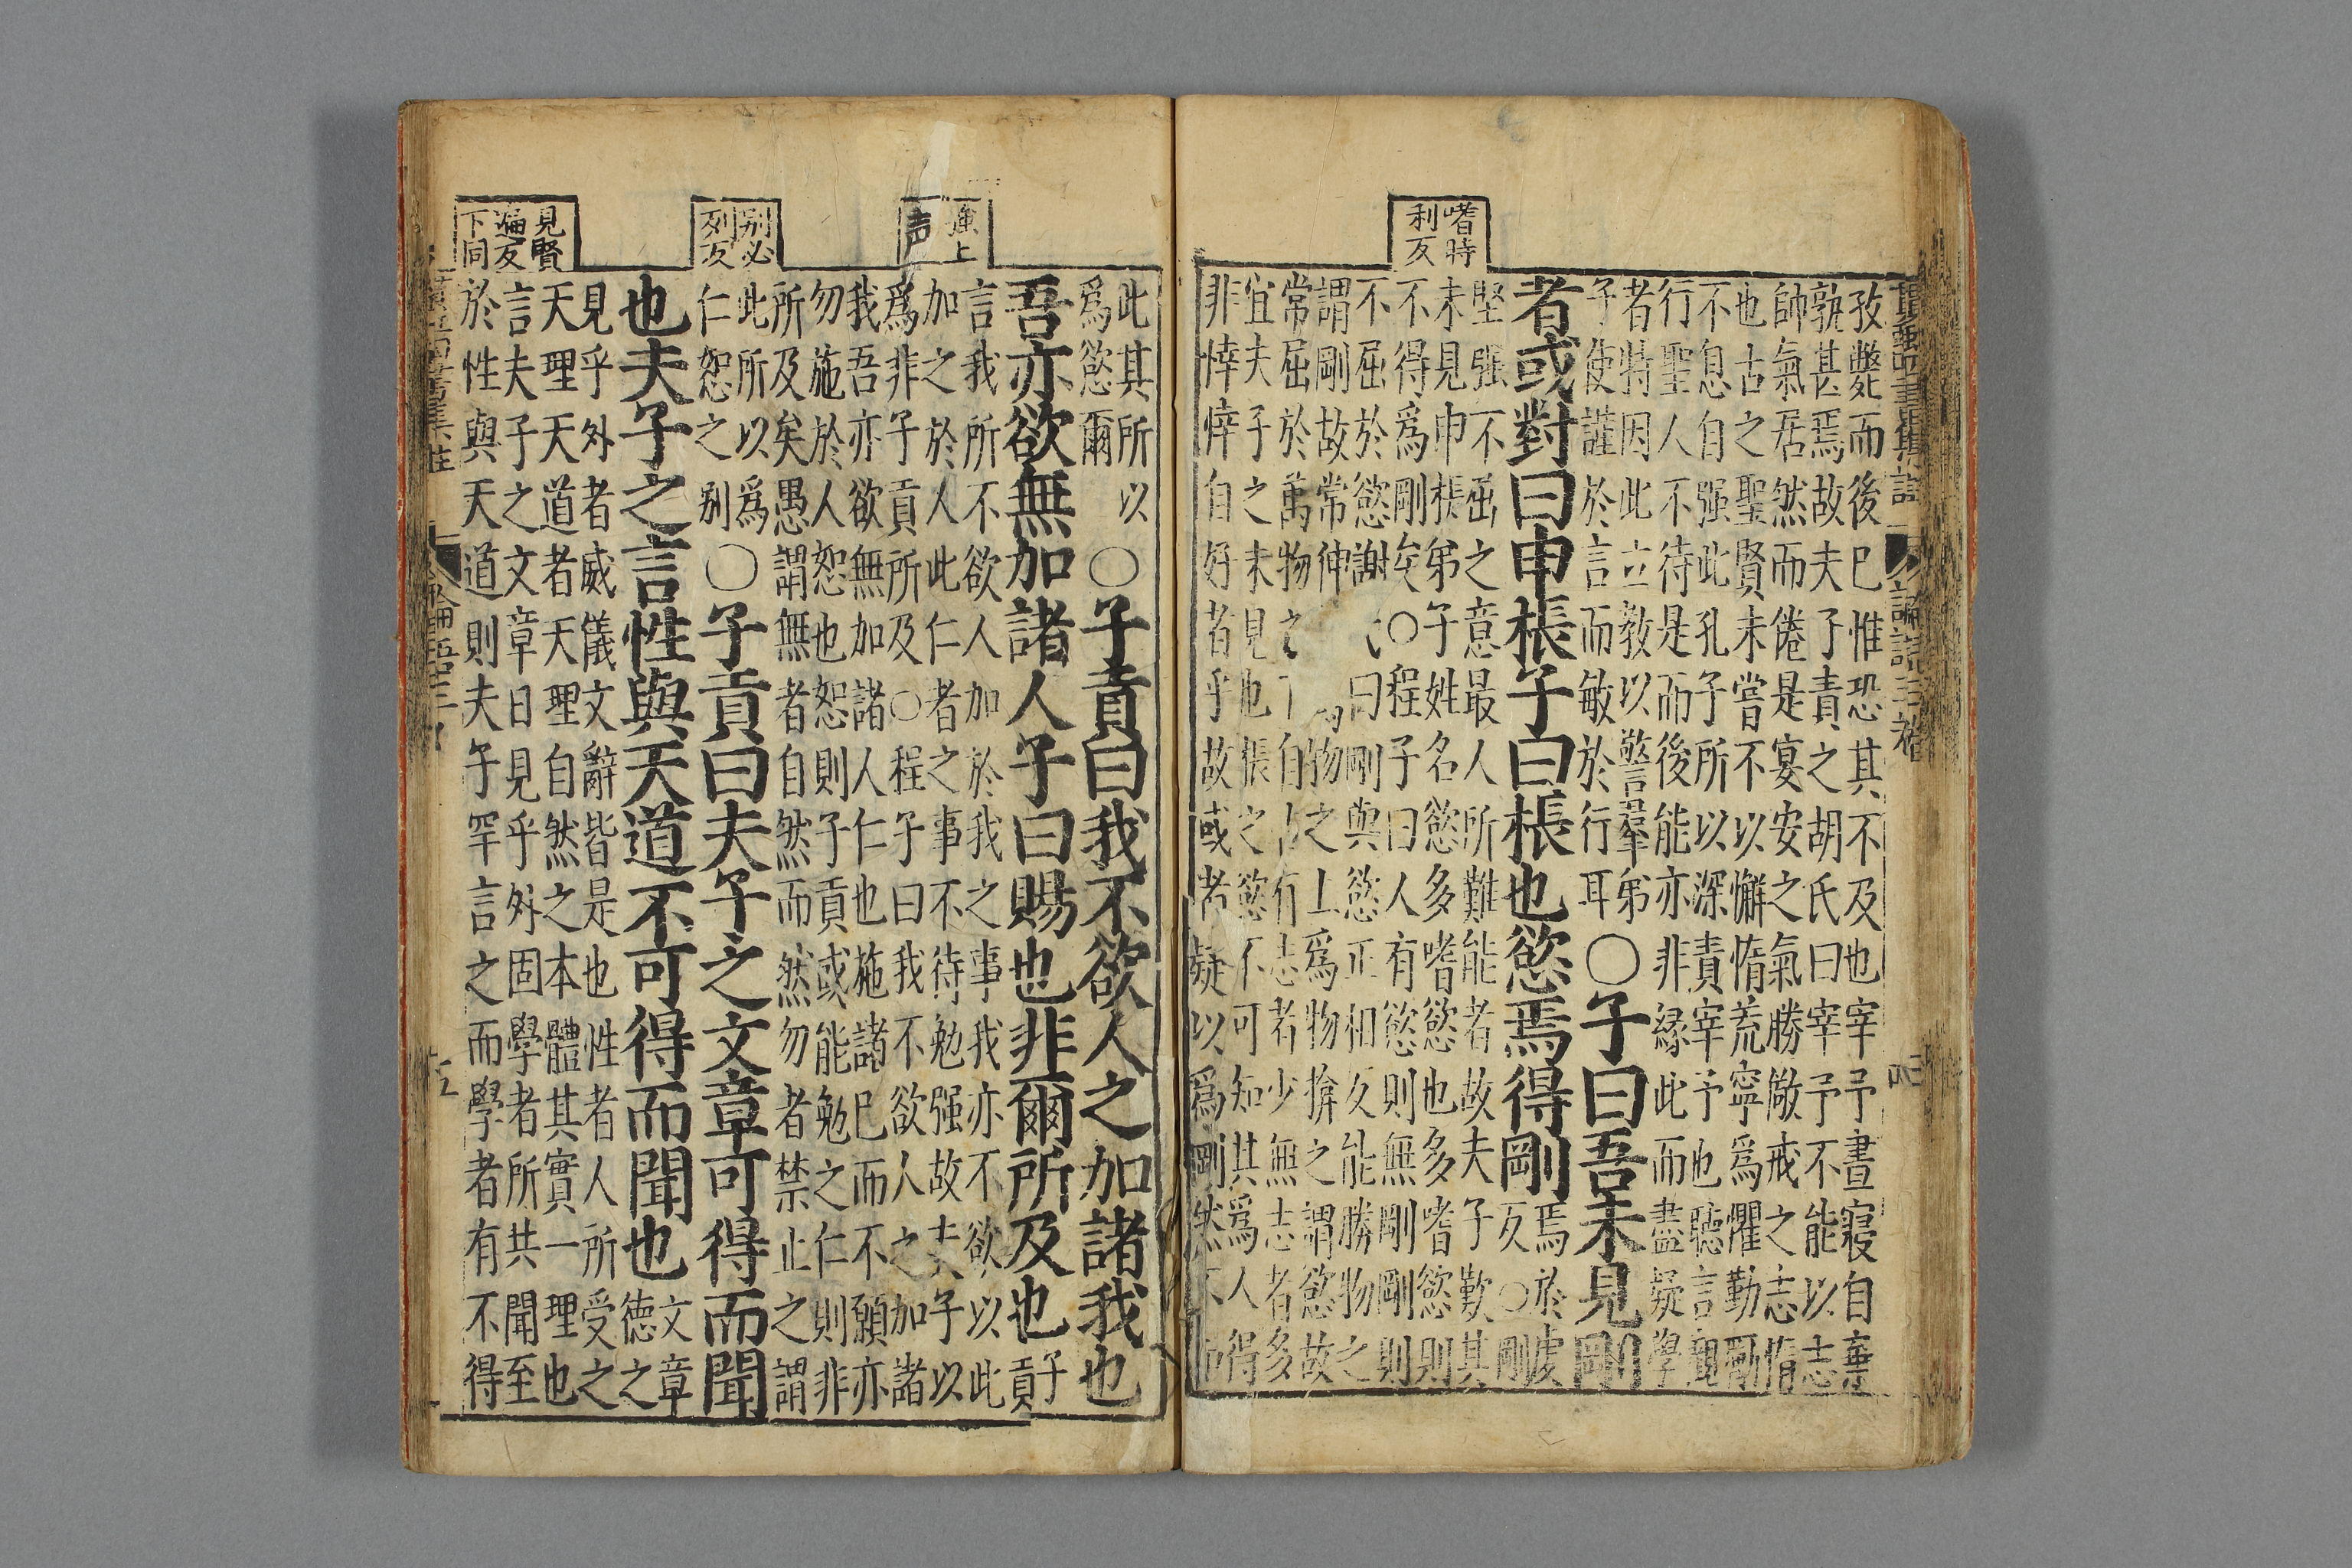 嗜時
利反
孜斃而後已惟恐其不及也宰予晝寢自棄
孰甚焉故夫子責之胡氏曰宰予不能以志
帥氣居然而倦是宴安之氣勝儆戒之志惰
也古之聖賢未嘗不以懈惰荒寧爲懼勤勵
不息自强此孔子所以深責宰予也聽言觀
行聖人不待是而後能亦非緣此而盡疑學
者特因此立教以警羣弟
子使謹於言而敏於行耳
○子曰吾未見剛
者或對曰申棖子曰棖也慾焉得剛
焉於虔
反○剛
堅强不屈之意最人所難能者故夫子歎其
未見申棖弟子姓名慾多嗜慾也多嗜慾則
不得爲剛矣○程子曰人有慾則無剛剛則
不屈於慾謝曰剛與慾正相反能勝物之
謂剛故常伸物之上爲物揜之謂慾故
常屈於萬物之下自古有志者少無志者多
宜夫子之未見也棖之慾不可知其爲人得
非悻悻自好者乎故或者疑以爲剛然不
强上
声
别必
列反
見賢
遍反
下同
此其所以
爲慾爾
○子貢曰我不欲人之加諸我也
吾亦欲無加諸人子曰賜也非爾所及也
子
貢
言我所不欲人加於我之事我亦不欲以此
加之於人此仁者之事不待勉强故夫子以
爲非子貢所及○程子曰我不欲人之加諸
我吾亦欲無加諸人仁也施諸己而不願亦
勿施於人恕也恕則子貢或能勉之仁則非
所及矣愚謂無者自然而然勿者禁止之謂
此所以爲
仁恕之别
○子貢曰夫子之文章可得而聞
也夫子之言性與天道不可得而聞也
文章
德之
見乎外者威儀文辭皆是也性者人所受之
天理天道者天理自然之本體其實一理也
言夫子之文章日見乎外固學者所共聞至
於性與天道則夫子罕言之而學者有不得